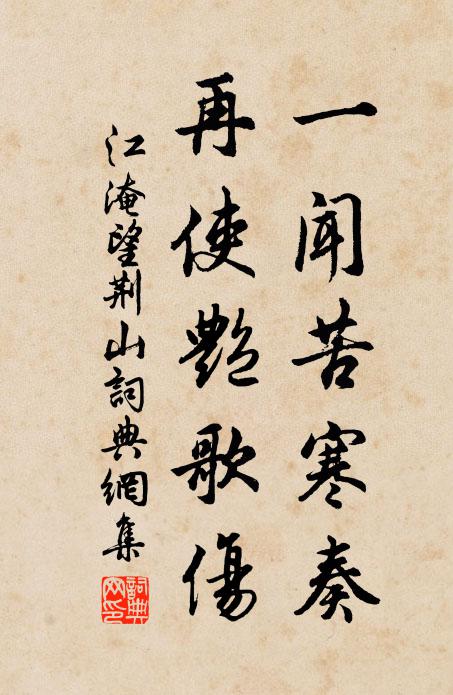 一聞苦寒奏
再使艷歌傷
江淹望荆山詞典網集
詞典
网印